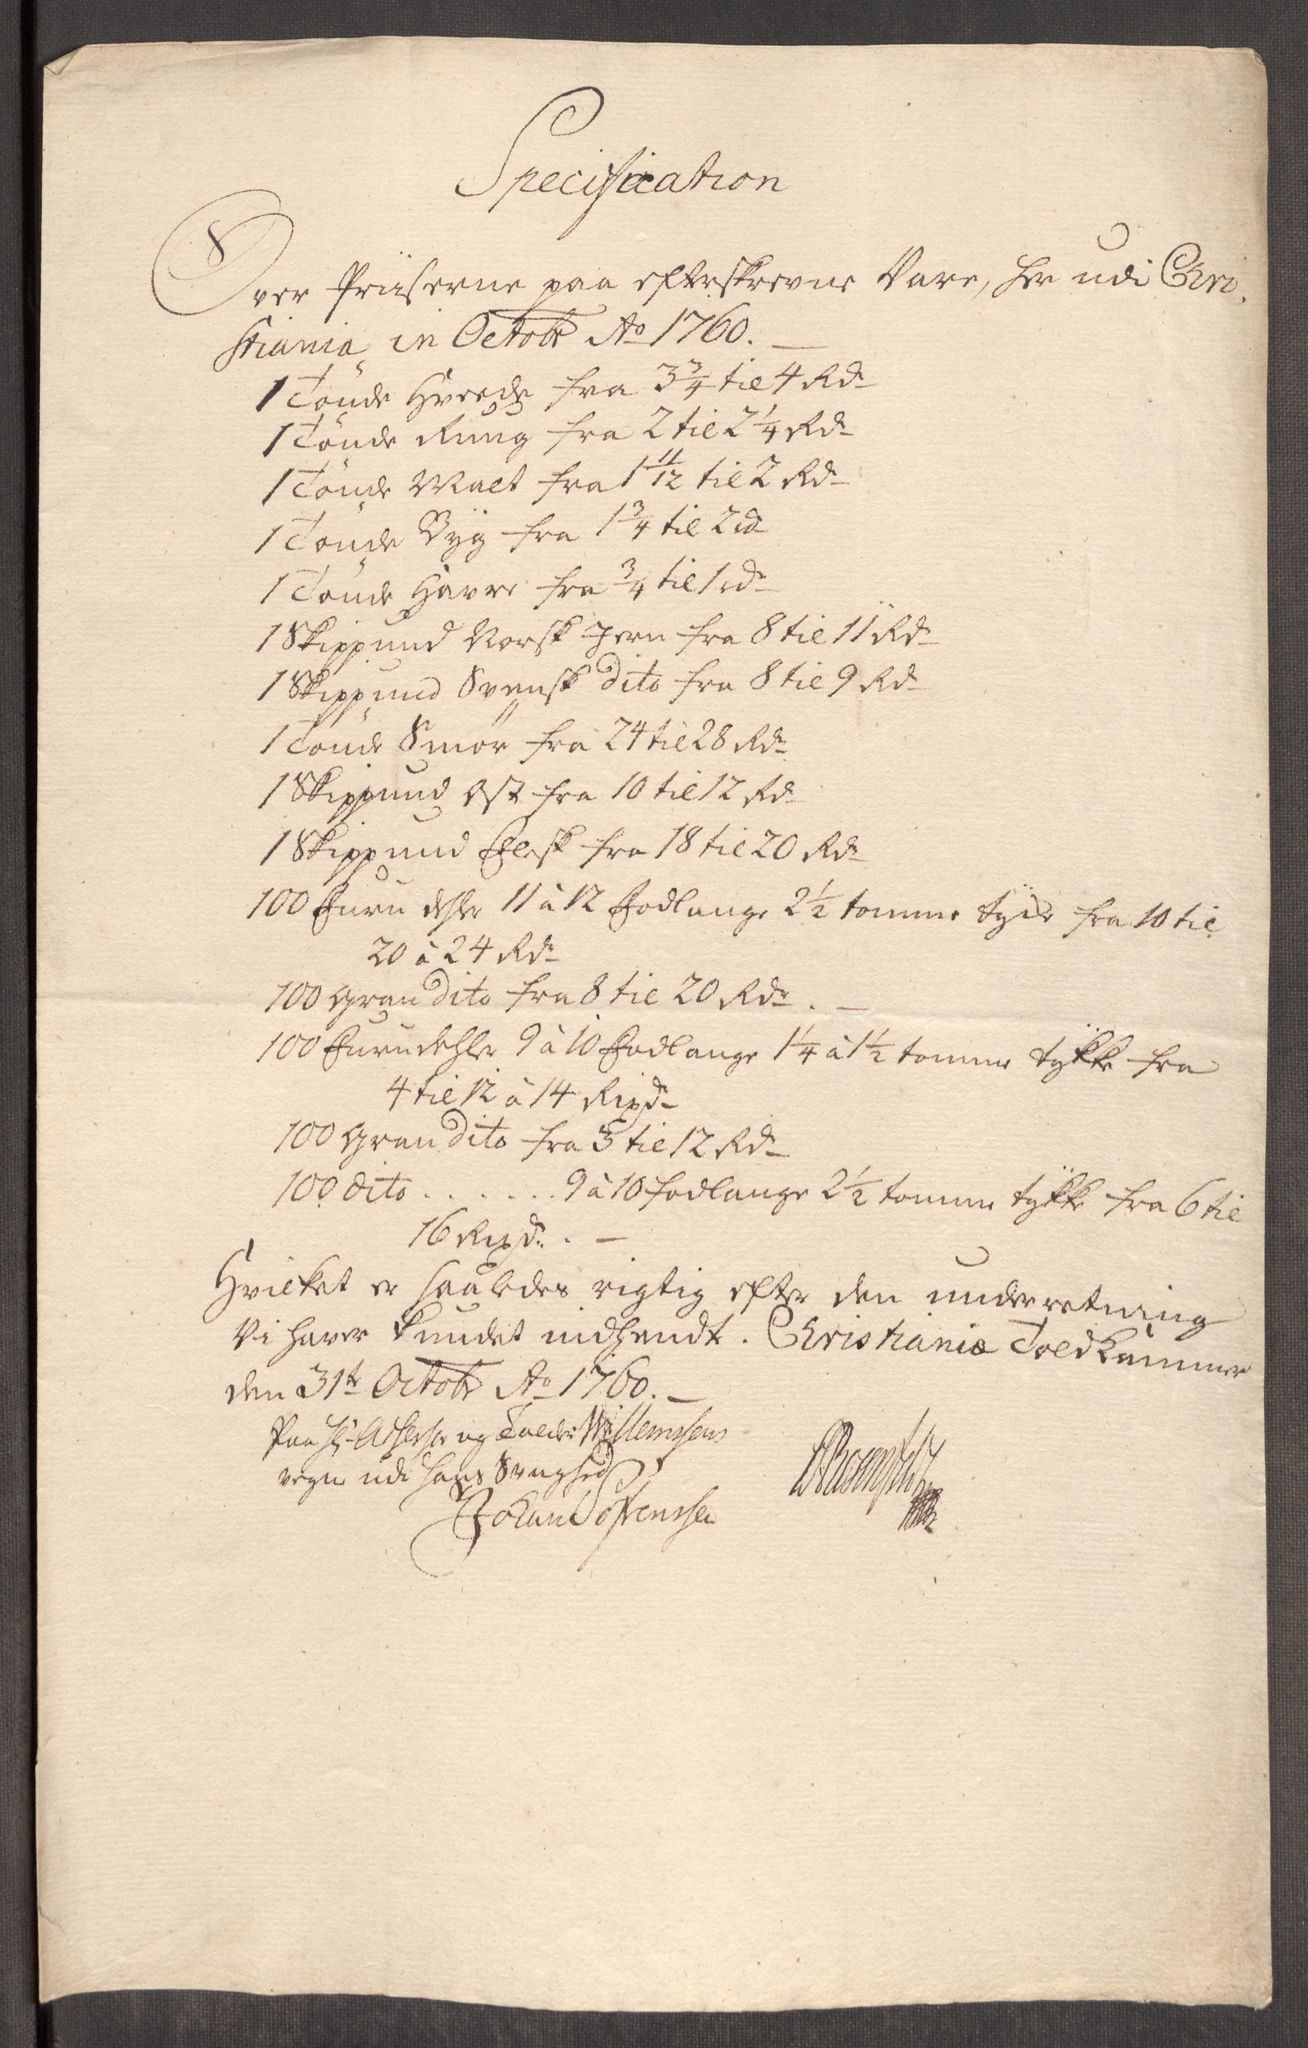 Specification
Over Priiserne paa efterskrevne Vare, her udi Chri-
stiania in Octobr Ao 1760.
1 Tönde Hvede fra 3 3/4 til 4 Rdr
1 Tönde Rung fra 2 til 2 1/4 Rdr
1 Tönde Malt fra 1 11/12 til 2 Rdr
1 Tönde Byg fra 1 3/4 til 2 rd
1 Tönde Havre fra 3/4 til 1 rdr
1 Skippund Norsk Jern fra 8 til 11 Rdr
1 Skippund Svensk dito fra 8 til 9 Rdr
1 Tönde Smör fra 24 til 28 Rdr
1 Skippund Ost fra 10 til 12 Rdr
1 Skippund Flesk fra 18 til 20 Rdr
100 Furu dehler 11 à 12 Fodlange 2 1/2 tomme tycke fra 10 til
20 à 24 Rdr
100 Gran dito fra 8 til 20 Rdr.
100 Furudehler 9 à 10 Fodlange 1 1/4 à 1 1/2 tomme tykke fra
4 til 12 à 14 Rixdr
100 Gran dito fra 3 til 12 Rdr
100 dito . . . . . . 9 à 10 fodlange 2 1/2 tomme tykke fra 6 til
16 Rixdr.
Hvilket er saaledes rigtig efter den underretning
Vi haver kundet indhendt. Christiania Toldkammer
den 31te Octobr Ao 1760.
Paa Hr og Tolder Willemsens
vegne udi hans Svaghed
Johan Sörenssen